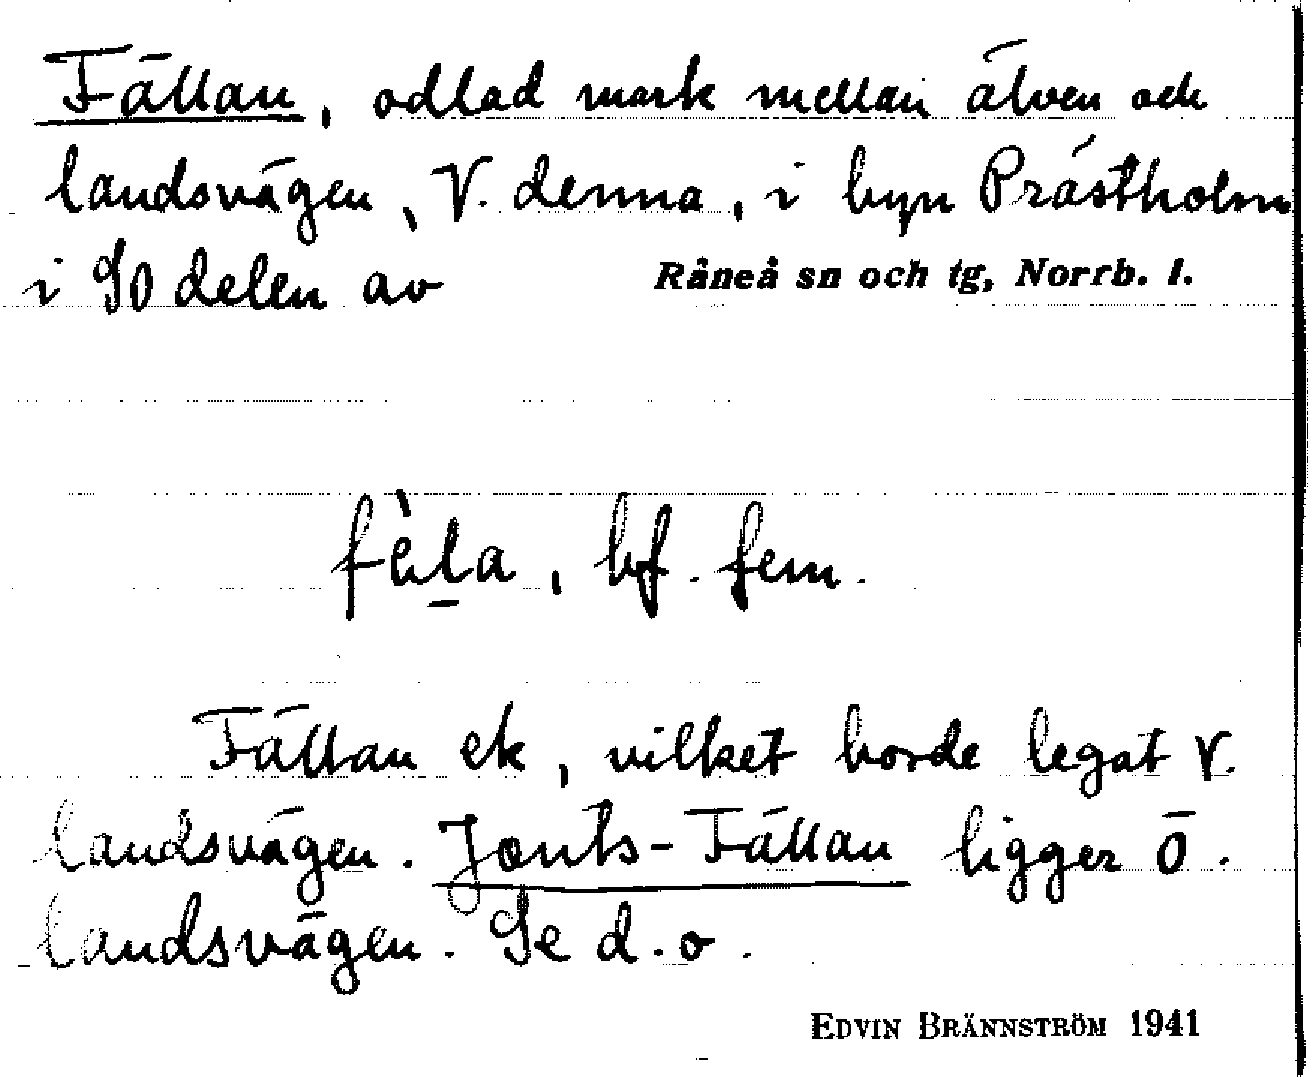 Fällan, odlad mark mellan älven och
landsvägen, V. denna, i byn Prästholm
i SO delen av Råneå sn och tg, Norrb. l.
fè̀l̲a, bf. fem.
Fällan ek, vilket borde legat V.
landsvägen. Jonts-Fällan ligger Ö.
landsvägen. Se d.o.
EDVIN BRÄNNSTRÖM 1941